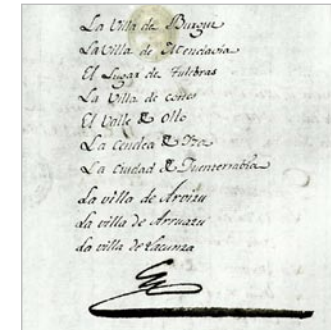 La Villa de Burgui
La Villa de Mendavia
El Lugar de Tulebras
La Villa de Cortes
El Valle de Ollo
La Cendea de Iza
La Ciudad de Fuenterrabia
La villa de Arvizu
La villa de Arruazu
La villa de Lacunza